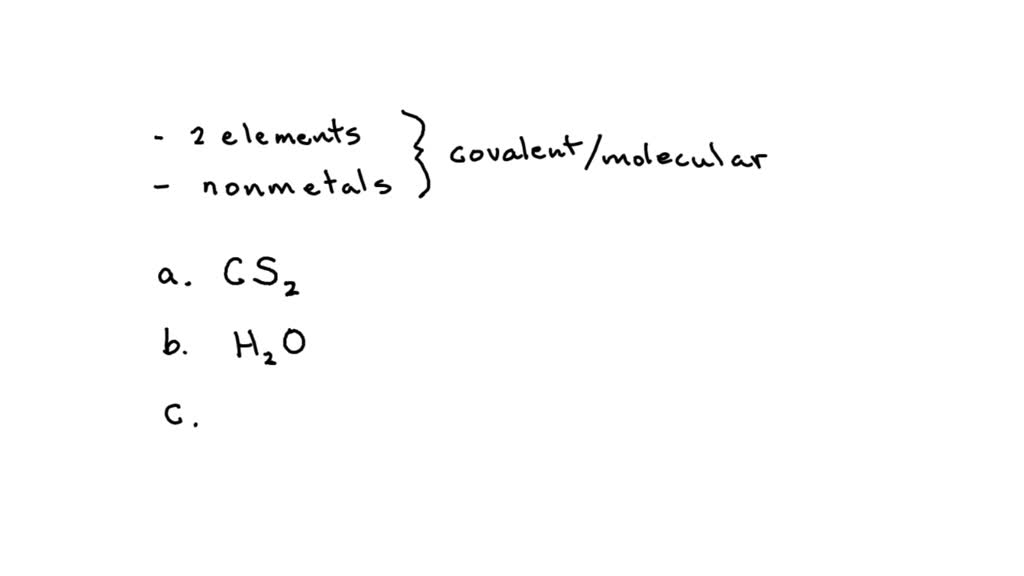 - 2 elements
- nonmetals
} covalent/molecular
a. CS₂
b. H₂O
c.